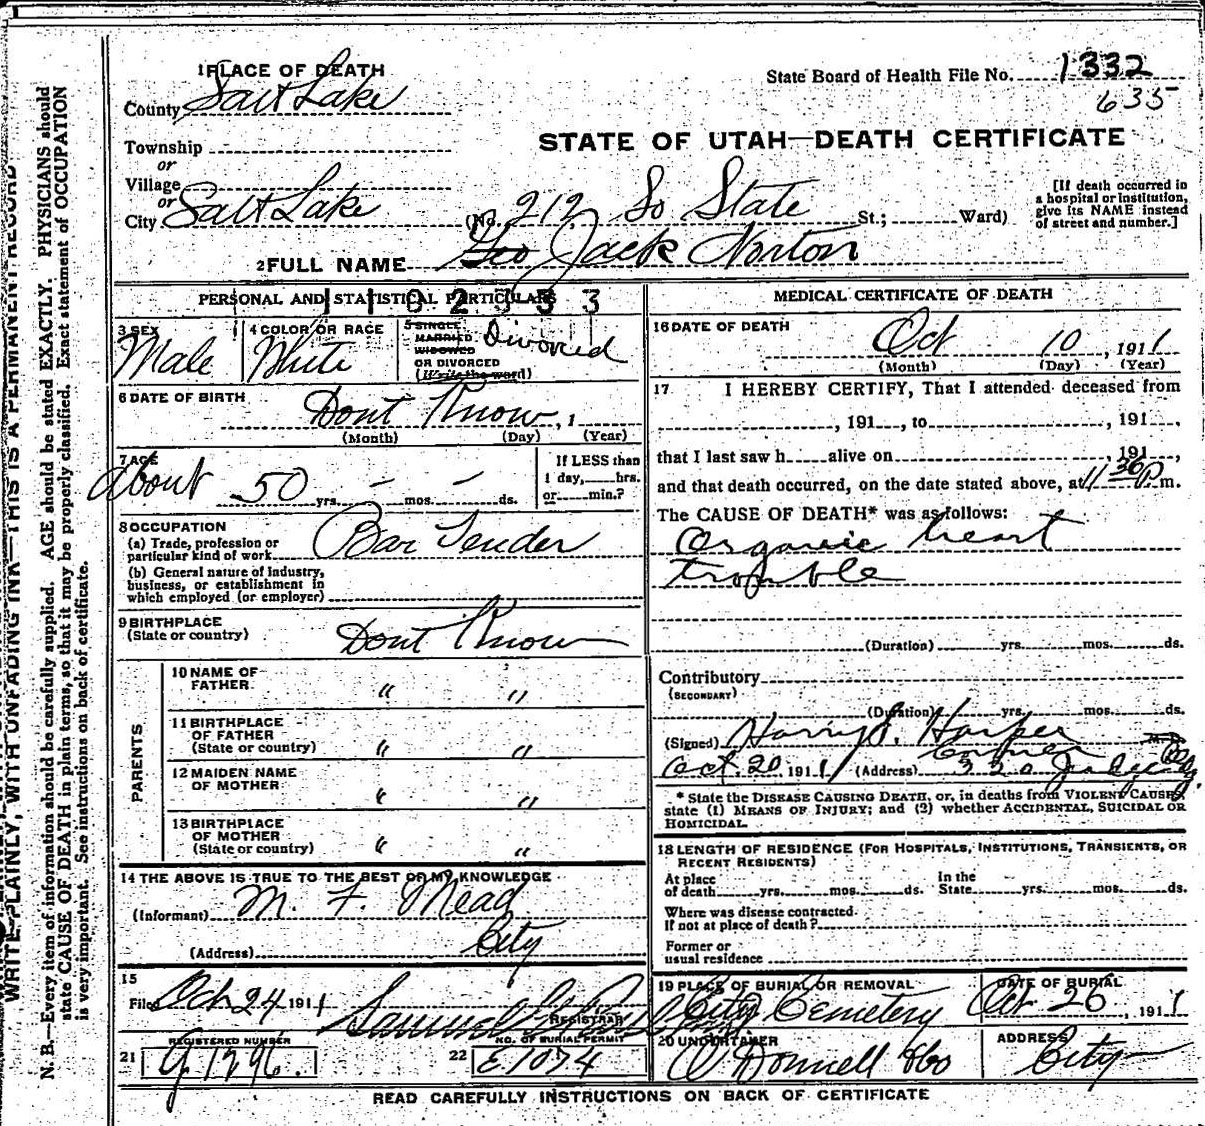 1 PLACE OF DEATH
County Salt Lake
State Board of Health File No. 1332
635
STATE OF UTAH—DEATH CERTIFICATE
Township
or
Village
or
City Salt Lake (No. 212 So State St.; Ward)
[If death occurred in a hospital or institution, give its NAME instead of street and number.]
2 FULL NAME Geo Jack Norton
PERSONAL AND STATISTICAL PARTICULARS
3 SEX Male
4 COLOR OR RACE White
5 SINGLE MARRIED WIDOWED OR DIVORCED (Write the word) Divorced
6 DATE OF BIRTH Dont Know, 1
(Month) (Day) (Year)
7 AGE about 50 yrs. – mos. – ds.
If LESS than 1 day, hrs. or min.?
8 OCCUPATION
(a) Trade, profession or particular kind of work Bar Tender
(b) General nature of industry, business, or establishment in which employed (or employer)
9 BIRTHPLACE (State or country) Dont Know
PARENTS
10 NAME OF FATHER " "
11 BIRTHPLACE OF FATHER (State or country) " "
12 MAIDEN NAME OF MOTHER " "
13 BIRTHPLACE OF MOTHER (State or country) " "
14 THE ABOVE IS TRUE TO THE BEST OF MY KNOWLEDGE
(Informant) M. F. Mead
(Address) City
15
Filed Oct 24 1911 Samuel
REGISTRAR
REGISTERED NUMBER
21 G 1296.
NO. OF BURIAL PERMIT
22 E1074
MEDICAL CERTIFICATE OF DEATH
16 DATE OF DEATH
Oct 10, 1911
(Month) (Day) (Year)
17 I HEREBY CERTIFY, That I attended deceased from
, 191 , to , 191 ,
that I last saw h alive on , 191 ,
and that death occurred, on the date stated above, at 11 30 P m.
The CAUSE OF DEATH* was as follows:
Organic heart
trouble
(Duration) yrs. mos. ds.
Contributory
(SECONDARY)
(Duration) yrs. mos. ds.
(Signed) Harry S. Harper M.D.
Oct. 20 1911 (Address) 320
* State the DISEASE CAUSING DEATH, or, in deaths from VIOLENT CAUSES, state (1) MEANS OF INJURY; and (2) whether ACCIDENTAL, SUICIDAL OR HOMICIDAL.
18 LENGTH OF RESIDENCE (FOR HOSPITALS, INSTITUTIONS, TRANSIENTS, OR RECENT RESIDENTS)
At place of death yrs. mos. ds. In the State yrs. mos. ds.
Where was disease contracted
If not at place of death?
Former or usual residence
19 PLACE OF BURIAL OR REMOVAL City Cemetery
DATE OF BURIAL Oct 26, 1911
20 UNDERTAKER O'Donnell &Co
ADDRESS City
READ CAREFULLY INSTRUCTIONS ON BACK OF CERTIFICATE
WRITE PLAINLY, WITH UNFADING INK—THIS IS A PERMANENT RECORD
N. B.—Every item of information should be carefully supplied. AGE should be stated EXACTLY. PHYSICIANS should
state CAUSE OF DEATH in plain terms, so that it may be properly classified. Exact statement of OCCUPATION
is very important. See instructions on back of certificate.